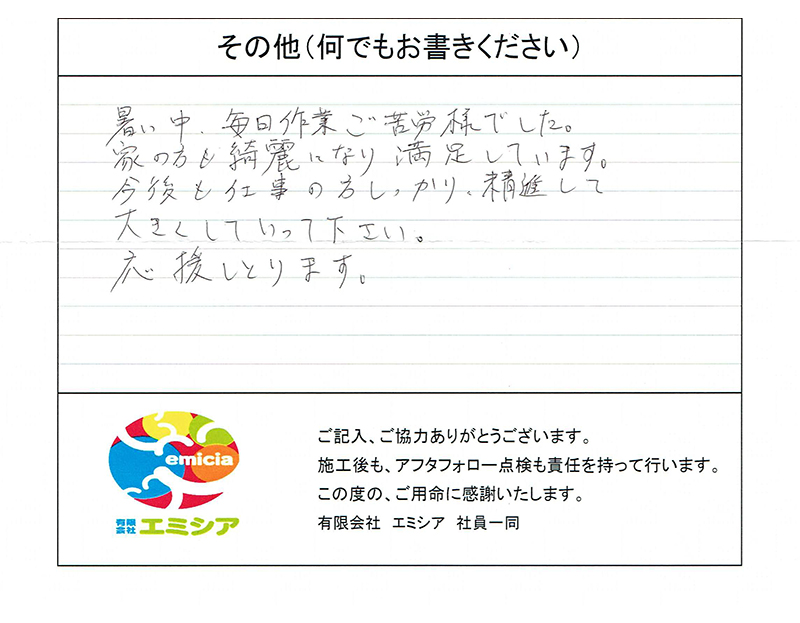 その他（何でもお書きください）
暑い中、毎日作業ご苦労様でした。
家の方も綺麗になり満足しています。
今後も仕事の方しっかり、精進して
大きくしていって下さい。
応援しとります。
emicia
有限会社 エミシア
ご記入、ご協力ありがとうございます。
施工後も、アフタフォロー点検も責任を持って行います。
この度の、ご用命に感謝いたします。
有限会社　エミシア　社員一同